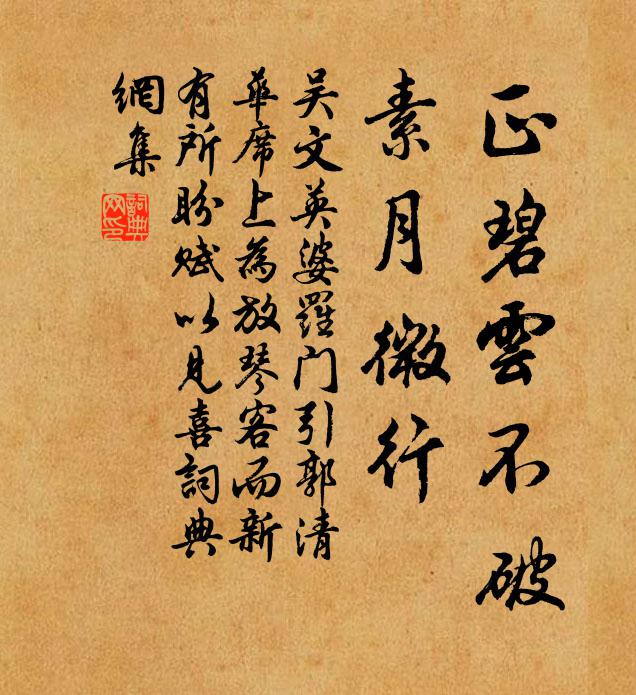 正碧雲不破
素月微行
吴文英婆羅门引郭清
華席上為放琴客而新
有所盼赋以见喜詞典
網集
詞典网印